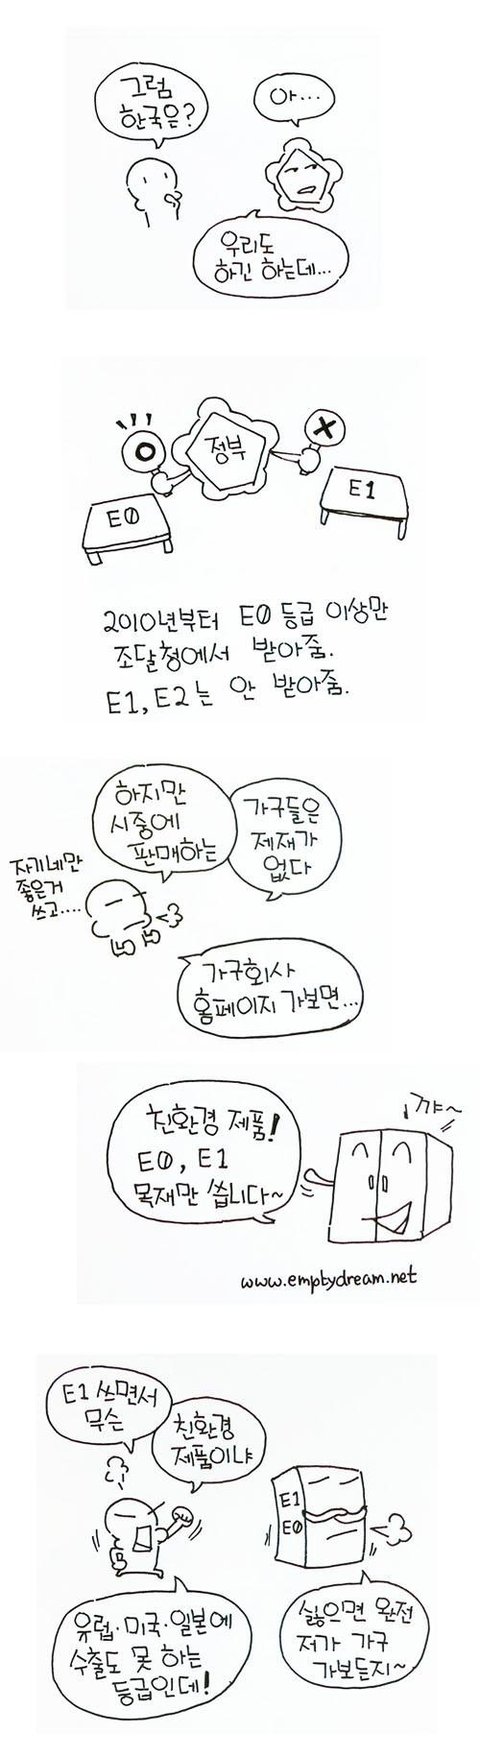 그럼
한국은?
아...
우리도
하긴 하는데...
정부
E0
E1
2010년부터 E0 등급 이상만
조달청에서 받아줌.
E1, E2는 안 받아줌.
하지만
시중에
판매하는
가구들은
제재가
없다
자기네만
좋은거
쓰고....
가구회사
홈페이지 가보면...
친환경 제품!
E0, E1
목재만 씁니다~
꺄~
www.emptydream.net
E1 쓰면서
무슨
친환경
제품이냐
E1
E0
유럽·미국·일본에
수출도 못 하는
등급인데!
싫으면 완전
저가 가구
가보든지~